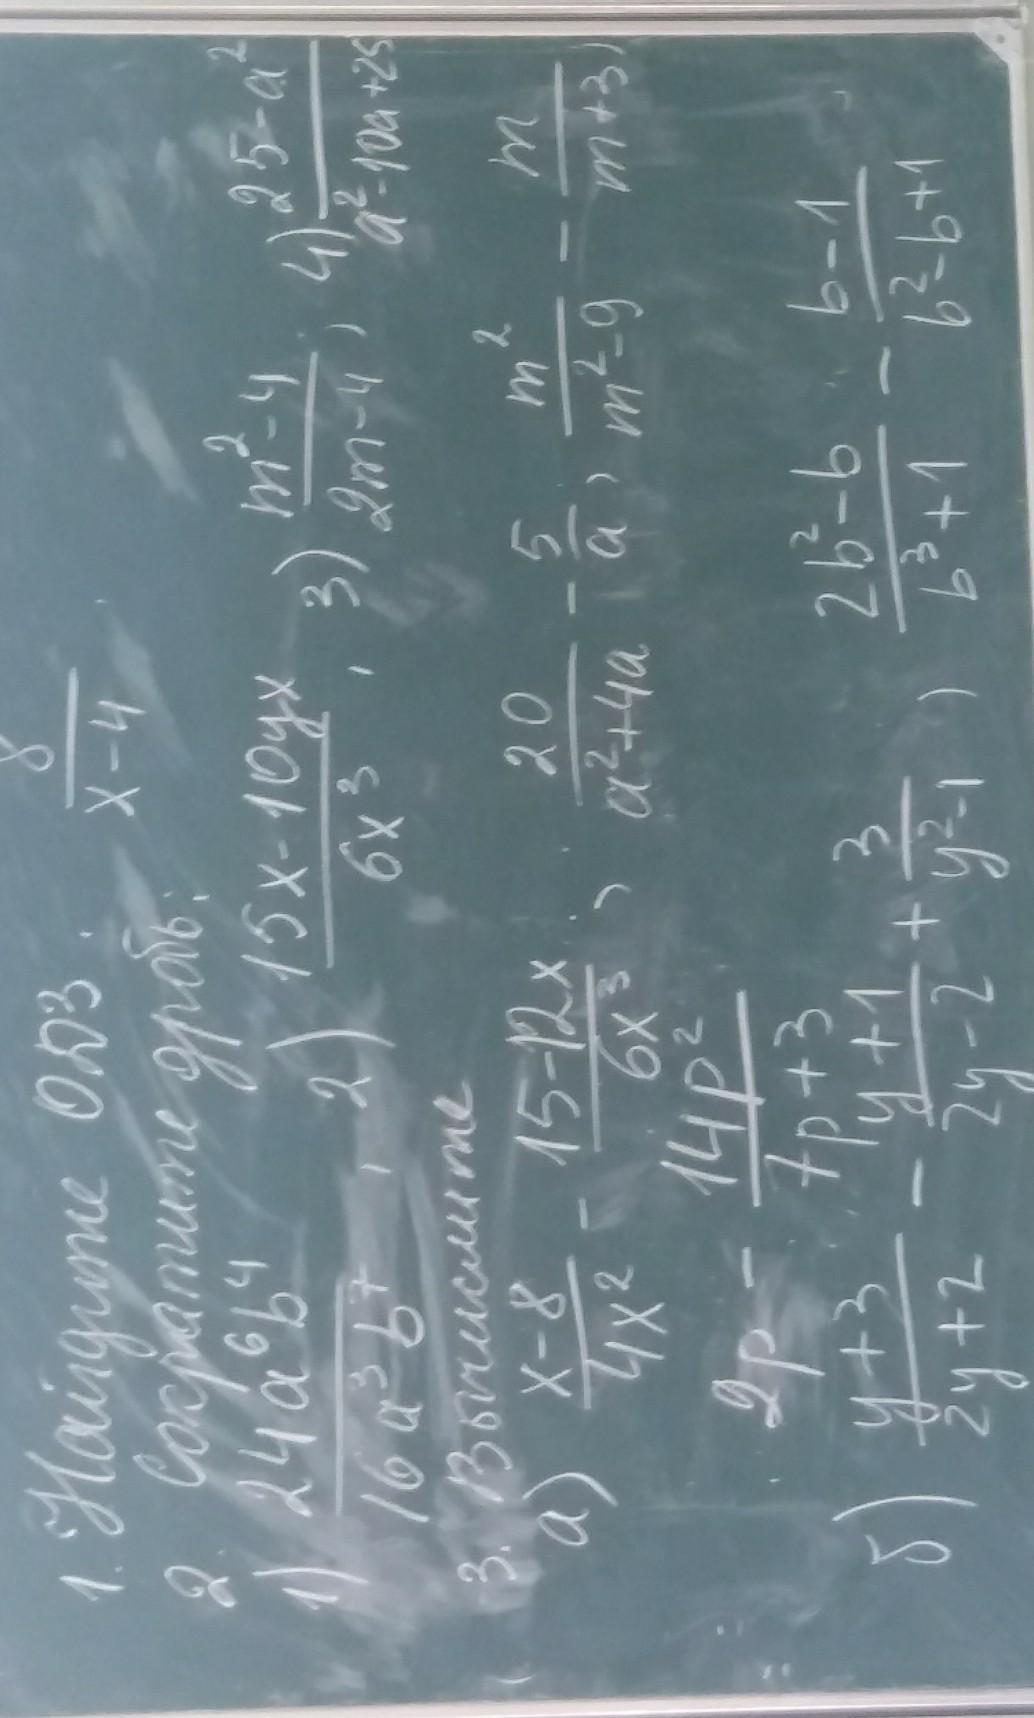 1. Найдите ОДЗ: 8/(x-4)
2. Сократите дробь:
1) 24a⁶b⁴/(16a³b⁷), 2) (15x-10yx)/(6x³), 3) (m²-4)/(2m-4); 4) (25-a²)/(a²-10a+25)
3. Вычислите
а) (x-8)/(4x²) - (15-12x)/(6x³); 20/(a²+4a) - 5/a; m²/(m²-9) - m/(m+3);
2p - 14p²/(7p+3)
б) (y+3)/(2y+2) - (y+1)/(2y-2) + 3/(y²-1); (2b²-b)/(b³+1) - (b-1)/(b²-b+1)